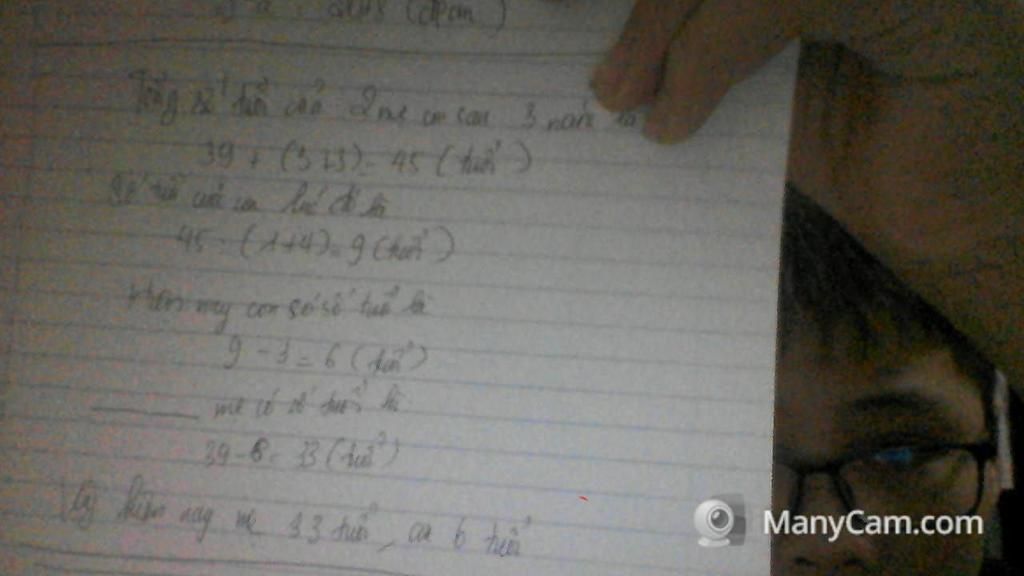 (đpcm)
Tổng số tuổi của 2 mẹ con sau 3 năm là
39 + (3+3) = 45 (tuổi)
Số tuổi của con lúc đó là
45 : (1+4) = 9 (tuổi)
Hiện nay con có số tuổi là
9 - 3 = 6 (tuổi)
mẹ có số tuổi là
39 - 6 = 33 (tuổi)
Vậy hiện nay mẹ 33 tuổi, con 6 tuổi
ManyCam.com